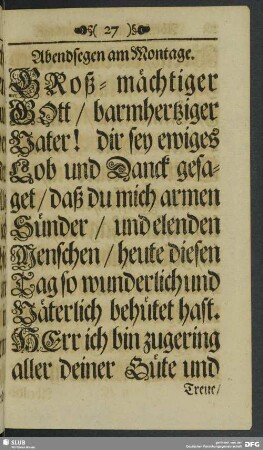 ( 27 )
Abendsegen am Montage.
GRoß-mächtiger
GOtt / barmhertziger
Vater! dir sey ewiges
Lob und Danck gesa-
get / daß du mich armen
Sünder / und elenden
Menschen / heute diesen
Tag so wunderlich und
Väterlich behütet hast.
HErr ich bin zu gering
aller deiner Güte und
Treue /
SLUB
DFG